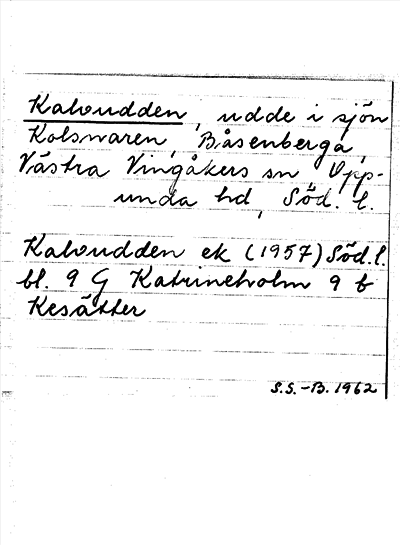 Kalvudden, udde i sjön
Kolsnaren, Båsenberga,
Västra Vingåkers sn, Opp-
unda hd, Söd. l.
Kalvudden ek (1957) Söd.l.
bl. 9 G Katrineholm 9 b
Kesätter
S.S.-B. 1962